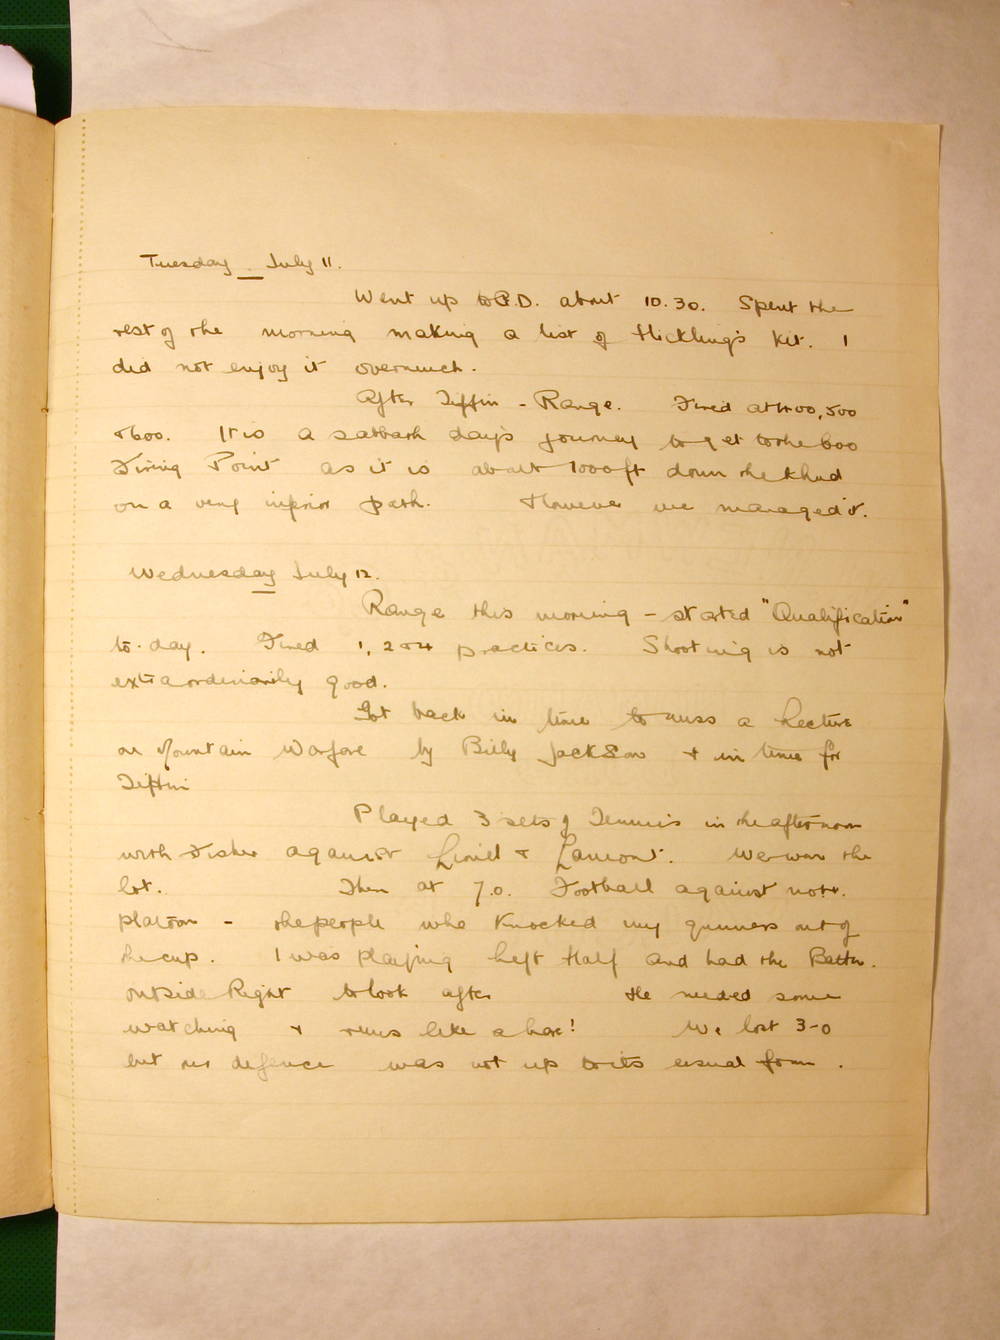 Tuesday July 11.
Went up to P.D. about 10.30. Spent the
rest of the morning making a list of Hickling's Kit. I
did not enjoy it overmuch.
After Tiffin - Range. Fired at 400, 500
& 600. It is a sabbath day's journey to get to the 600
Firing Point as it is about 1000 ft down the Khud
on a very inferior path. However we managed it.
Wednesday July 12.
Range this morning - started "Qualification"
to-day. Fired 1, 2 & 4 practices. Shooting is not
extraordinarily good.
Got back in time to miss a Lecture
on Mountain Warfare by Billy Jackson & in time for
Tiffin
Played 3 sets of Tennis in the afternoon
with Fisher against Lionel & Lamont. We won the
lot. Then at 7.0. Football against no 4.
platoon - the people who Knocked my gunners out of
the cup. I was playing Left Half and had the Battn.
outside Right to look after He needed some
watching & runs like a hare! We lost 3-0
but our defence was not up to its usual form.